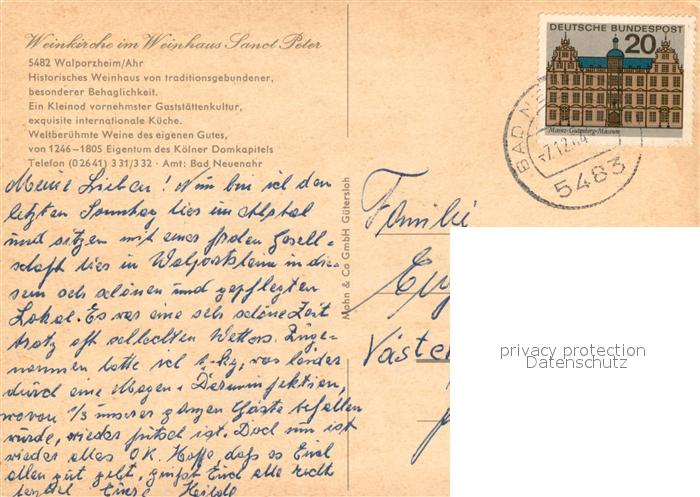 Weinkirche im Weinhaus Sanct Peter
5482 Walporzheim/Ahr
Historisches Weinhaus von traditionsgebundener,
besonderer Behaglichkeit.
Ein Kleinod vornehmster Gaststättenkultur,
exquisite internationale Küche.
Weltberühmte Weine des eigenen Gutes,
von 1246–1805 Eigentum des Kölner Domkapitels
Telefon (02641) 331/332 · Amt: Bad Neuenahr
Meine Lieben! Nun bin ich den
letzten Sonntag hier im Ahrtal
und sitzen mit einer frohen Gesell-
schaft hier in Walportzheim in die-
sem sehr schönen und gepflegten
Lokal. Es war eine sehr schöne Zeit
trotz oft schlechten Wetters. Zuge-
nommen hatte ich kg, was leider
durch eine Magen- Darminfektion,
wovon 1/3 unserer ganzen Gäste befallen
wurde, wieder futsch ist. Doch nun ist
wieder alles O.K. Hoffe, daß es Euch
allen gut geht, grüßt Euch alle recht
herzlich Eure
Mohn & Co GmbH Gütersloh
DEUTSCHE BUNDESPOST
20
Mainz-Gutenberg-Museum
BAD NE
-7.12.64
5483
Familie
Väster
privacy protection
Datenschutz